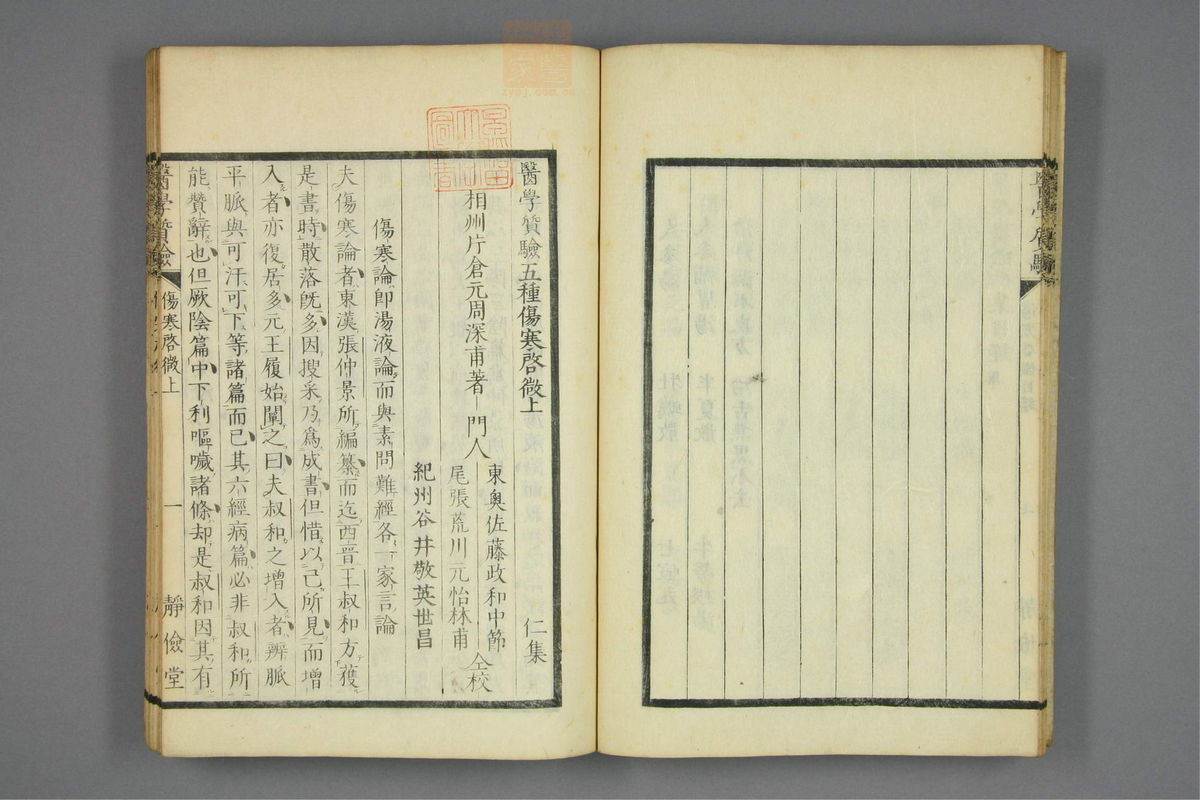 醫學質驗五種傷寒啓微上 仁集
相州片倉元周深甫著 門人 東奧佐藤政和中節
尾張荒川元怡林甫 仝校
紀州谷井敬英世昌
傷寒論即湯液論而與素問難經各一家言論
夫傷寒論者東漢張仲景所編纂而迄西晉王叔和方獲
是書時散落旣多因搜采乃爲成書但惜以己所見而增
入者亦復居多元王履始闡之曰夫叔和之增入者辨脈
平脈與可汗可下等諸篇而已其六經病篇必非叔和所
能贊辭也但厥陰篇中下利嘔噦諸條却是叔和因其有
醫學質驗 傷寒啓微上 一 靜儉堂